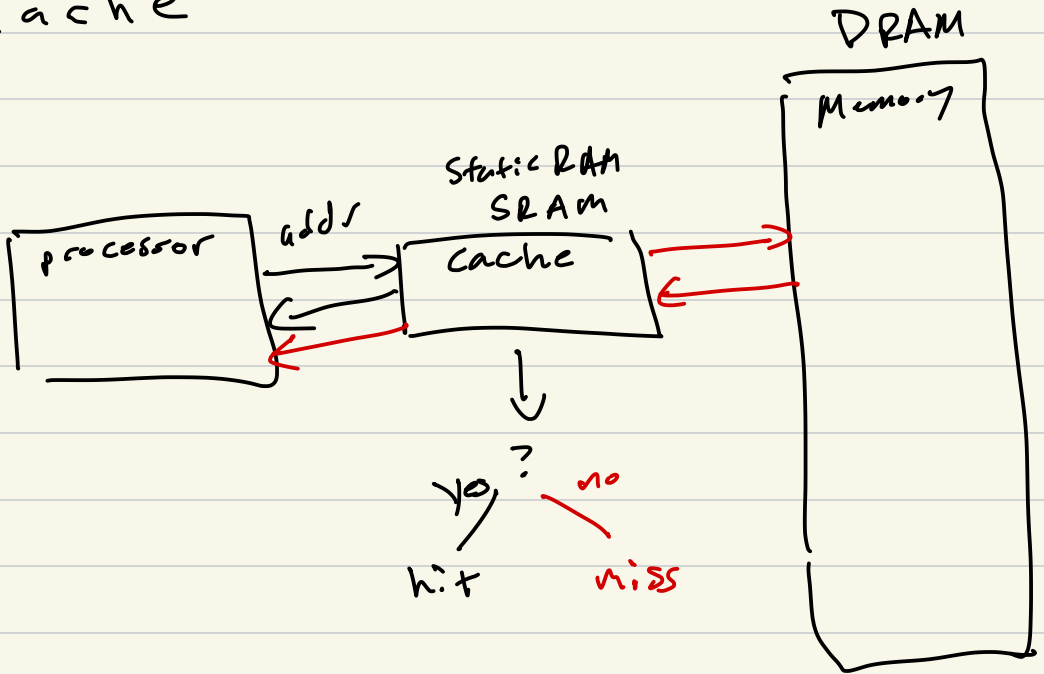 ache
DRAM
Memory
Static RAM
SRAM
processor
adds
cache
?
yes
no
hit
miss